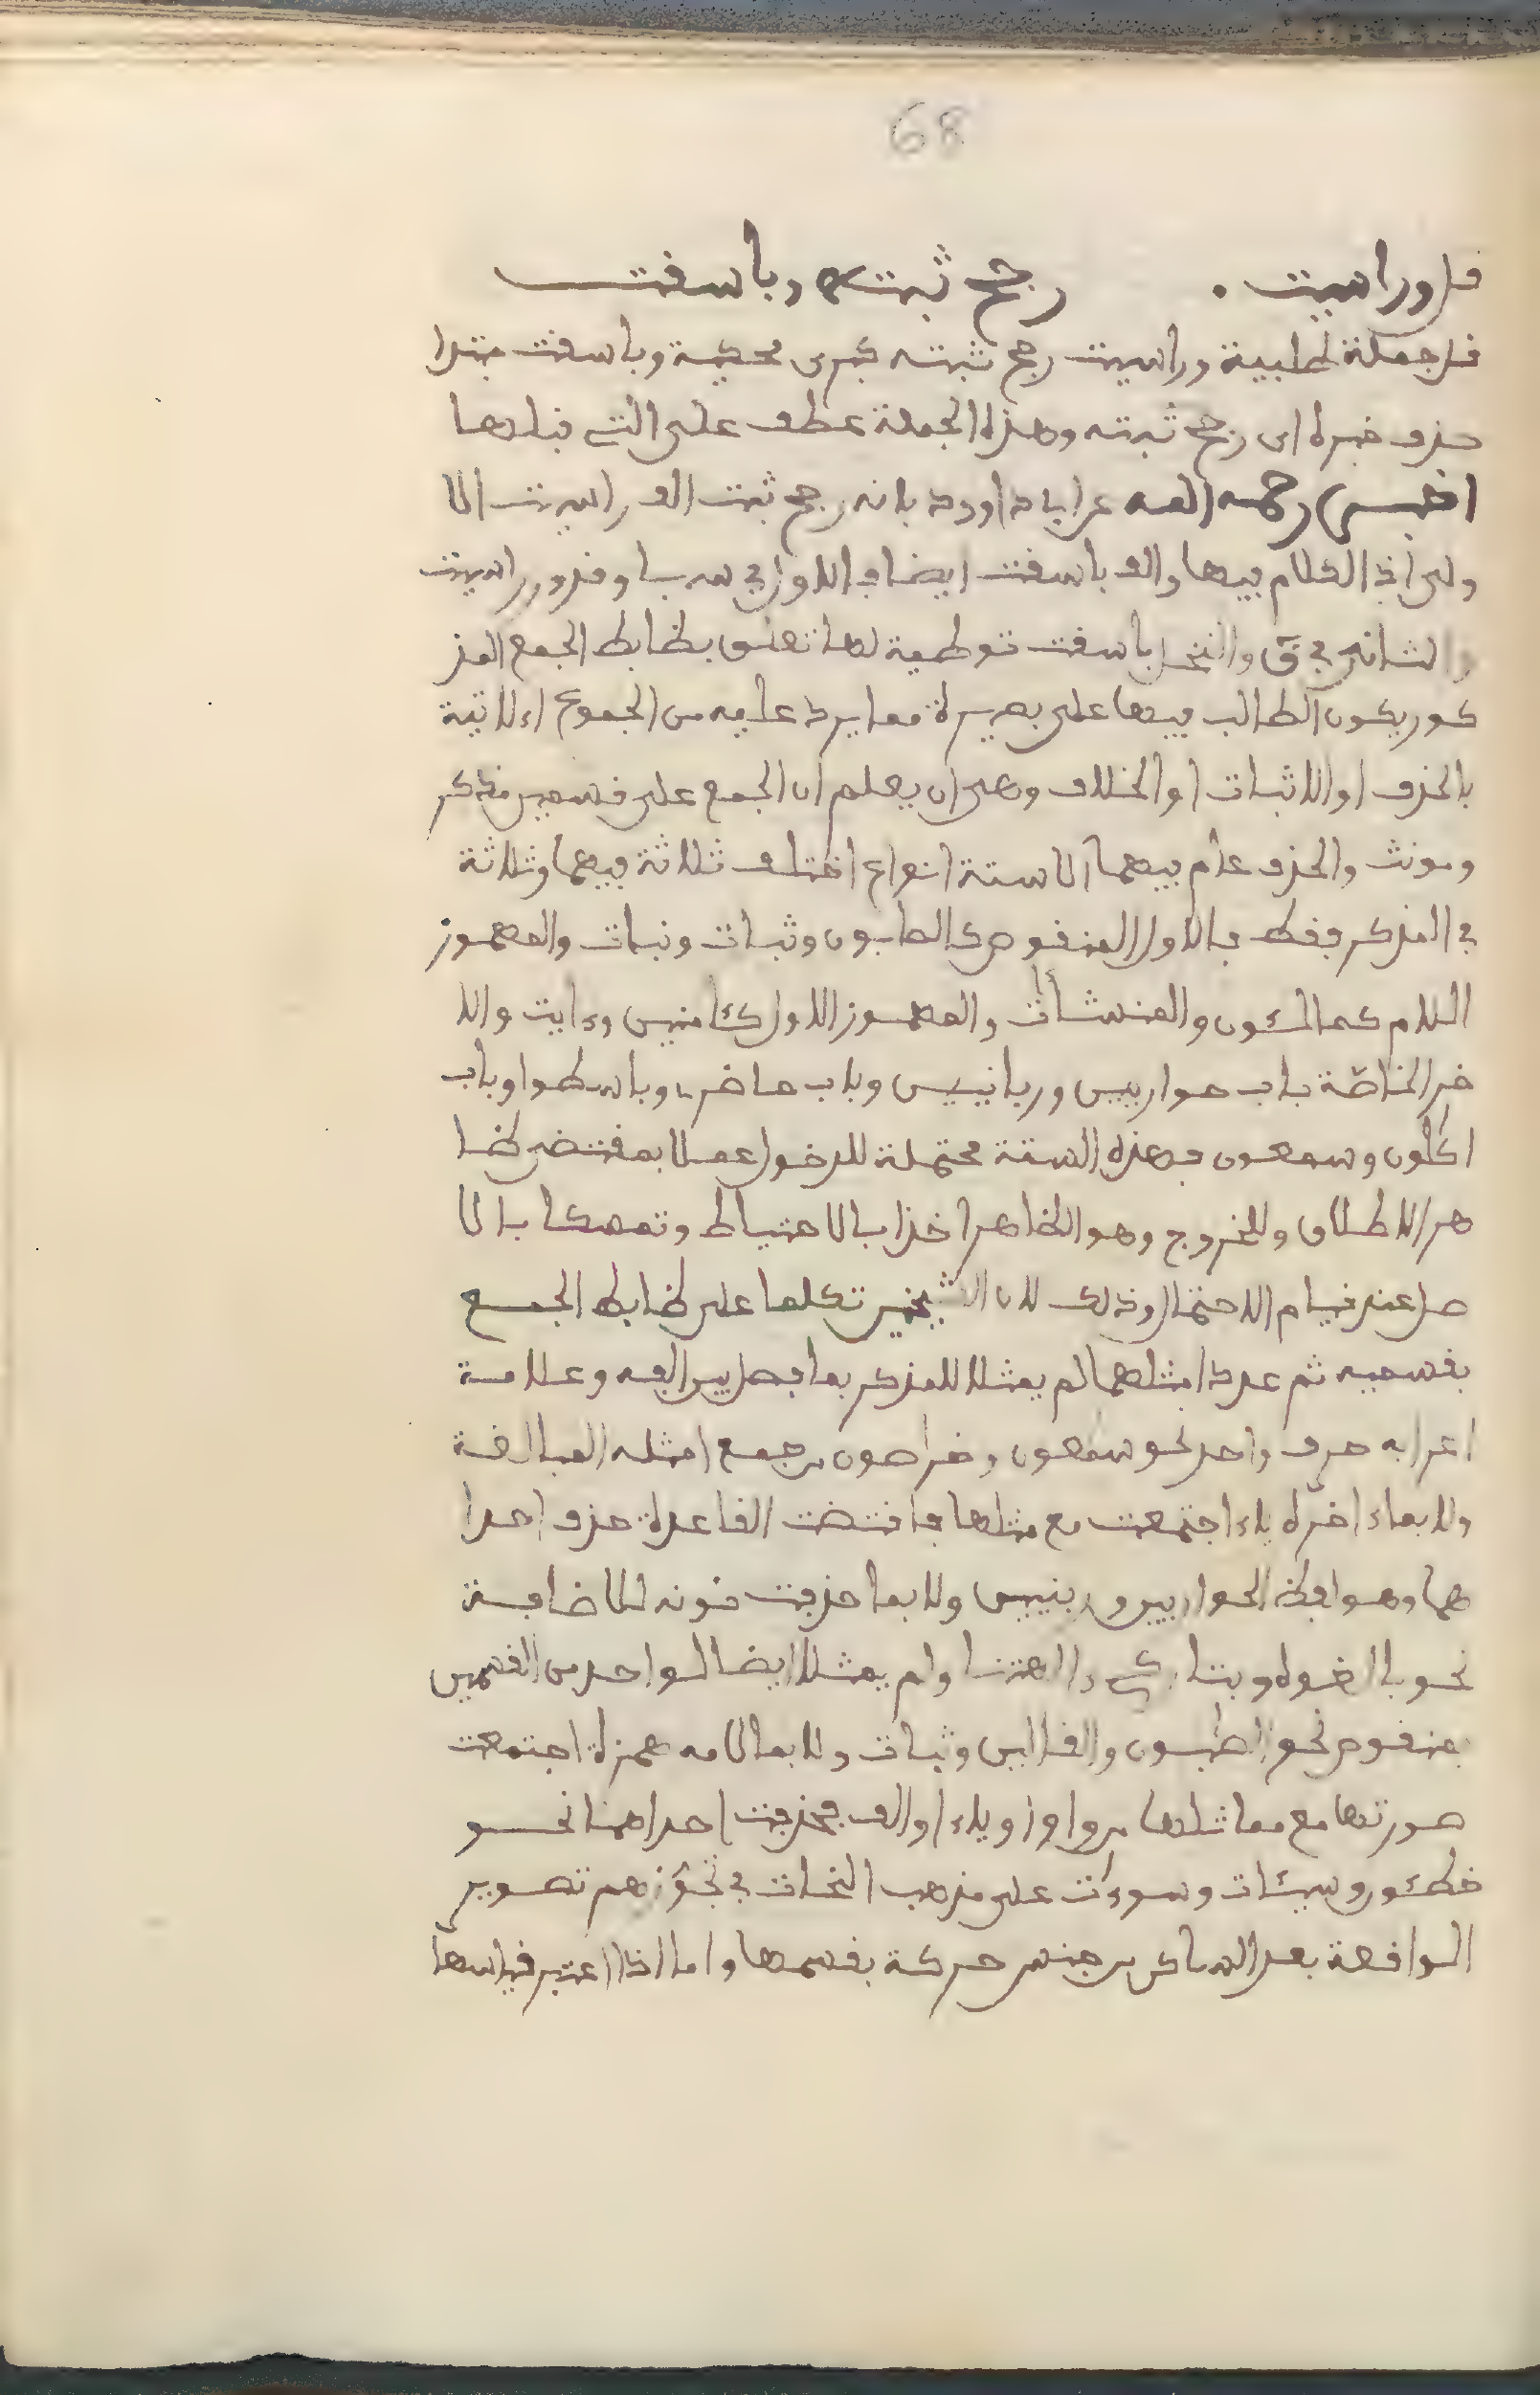 68
قل وراسيت . رجح ثبته وباسقت
قل جملة طلبية وراسيت رجح ثبته كبرى محكية وباسقت مبتدا
حذف خبره اى رجح ثبته وهذه الجملة عطف على التى قبلها
اخبر رحمه الله عن ابا داوود بانه رجح ثبت الف راسيت الا
ولى اذ الكلام فيها والف باسقت ايضا فالاول في سبا وقدور راسيت
والثانى في ق والنخل باسقت توطية لها تعلق بظابط الجمع المذ
كور يكون الطالب فيها على بصيرة مما يرد عليه من الجموع الاتية
بالحذف او الاثبات او الخلاف وهى ان يعلم ان الجمع على قسمين مذكر
ومونث والحذف عام فيهما الا ستة انواع اختلف ثلاثة فيهما وثلاثة
في المذكر فقط فالاول المنقوص كالصابون وثبات ونبات والمهموز
اللام كمالئون والمنشأات والمهموز الاول كئامنين وءايت والا
خر الخاصة باب حواريين وربانيين وباب حاضر وباسطوا وباب
اكلون وسمعون فهذه الستة محتملة للدخول عملا بمقتضى ظا
هر الاطلاق وللخروج وهو الظاهر اخذا بالاحتياط وتمسكا بالا
صل عند قيام الاحتمال وذلك لان الشيخين تكلما على ظابط الجمع
بقسميه ثم عددا مثلهما لم يمثلا للمذكر بما فصل بين الفه وعلامة
اعرابه حرف واحد نحو سمعون وخراصون من جمع امثله المبالغة
ولا بما اخره ياء اجتمعت مع مثلها فاقتضت القاعدة حذف احدا
هما وهو الحواريين وربنيين ولا بما حذفت نونه للاضافة
نحو بالغوه وبتاركى ءالهتنا ولم يمثلا ايضا لواحد من القسمين
بمنقوص نحو الطبون والقالين وثبات ولا بما لامه همزة اجتمعت
صورتها مع مماثلها من واو او ياء او الف فحذفت احداهما نحو
خطئون وسيئات وسوءات على مذهب النحات في تجوزهم تصوير
الواقعة بعد الساكن من جنس حركة بقسمها واما اذا اعتبر قياسها